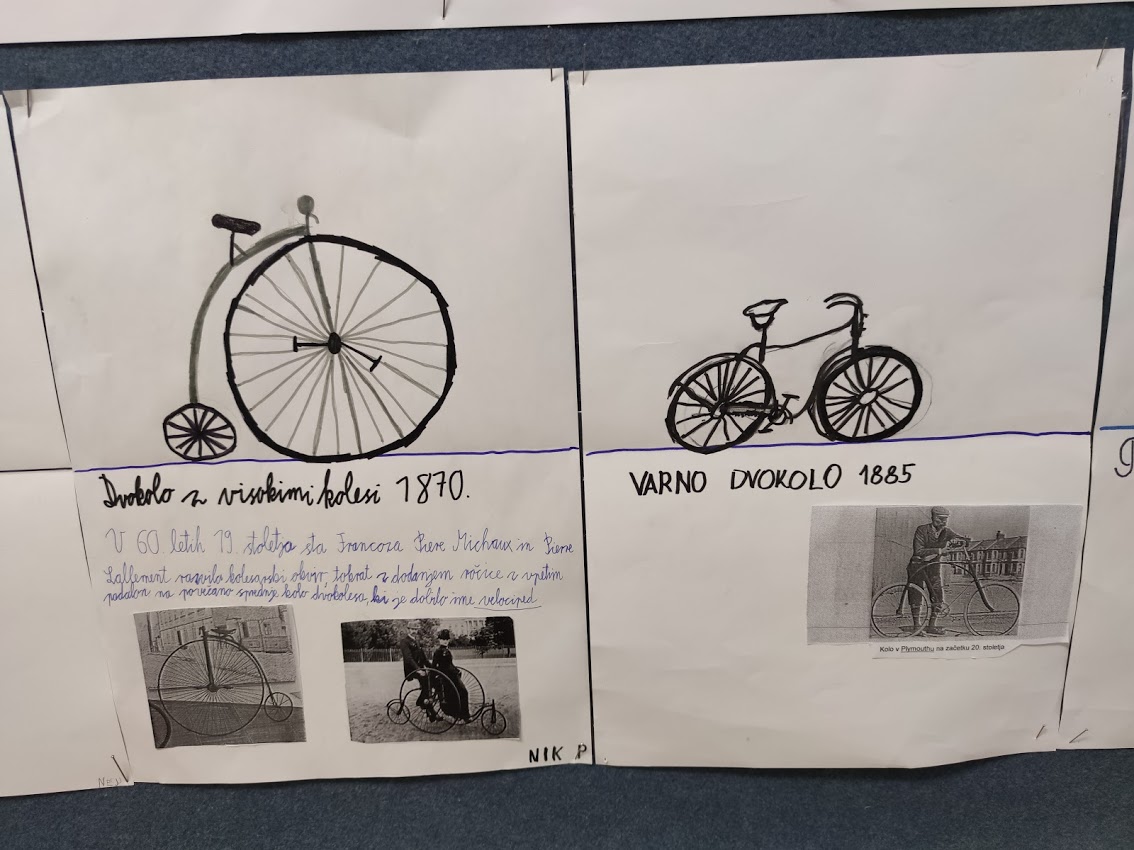 Dvokolo z visokimi kolesi 1870.
V 60. letih 19. stoletja sta Francoza Piere Michaux in Pierre
Lallement razvila kolesarski okvir, tokrat z dodanjem ročice z vpetim
pedalom na povečano sprednje kolo dvokolesa, ki je dobilo ime velociped
NIK P
VARNO DVOKOLO 1885
Kolo v Plymouthu na začetku 20. stoletja